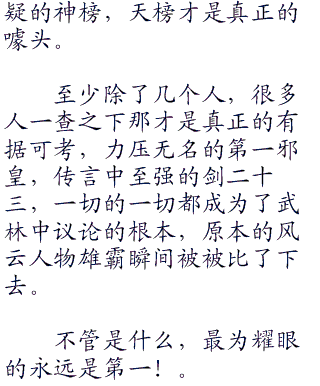 疑的神榜，天榜才是真正的
噱头。
至少除了几个人，很多
人一查之下那才是真正的有
据可考，力压无名的第一邪
皇，传言中至强的剑二十
三，一切的一切都成为了武
林中议论的根本，原本的风
云人物雄霸瞬间被被比了下
去。
不管是什么，最为耀眼
的永远是第一！。